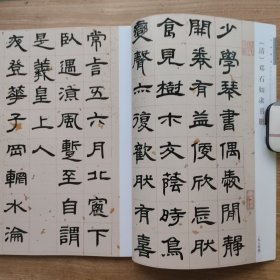 （清）鄧石如隸書
少學琴書偶愛閒靜
開卷有益便欣然
食見樹木交蔭時鳥
變聲亦復歡然有喜
常言五六月北窗下
臥遇涼風暫至自謂
是羲皇上人
夜登華子岡輞水淪